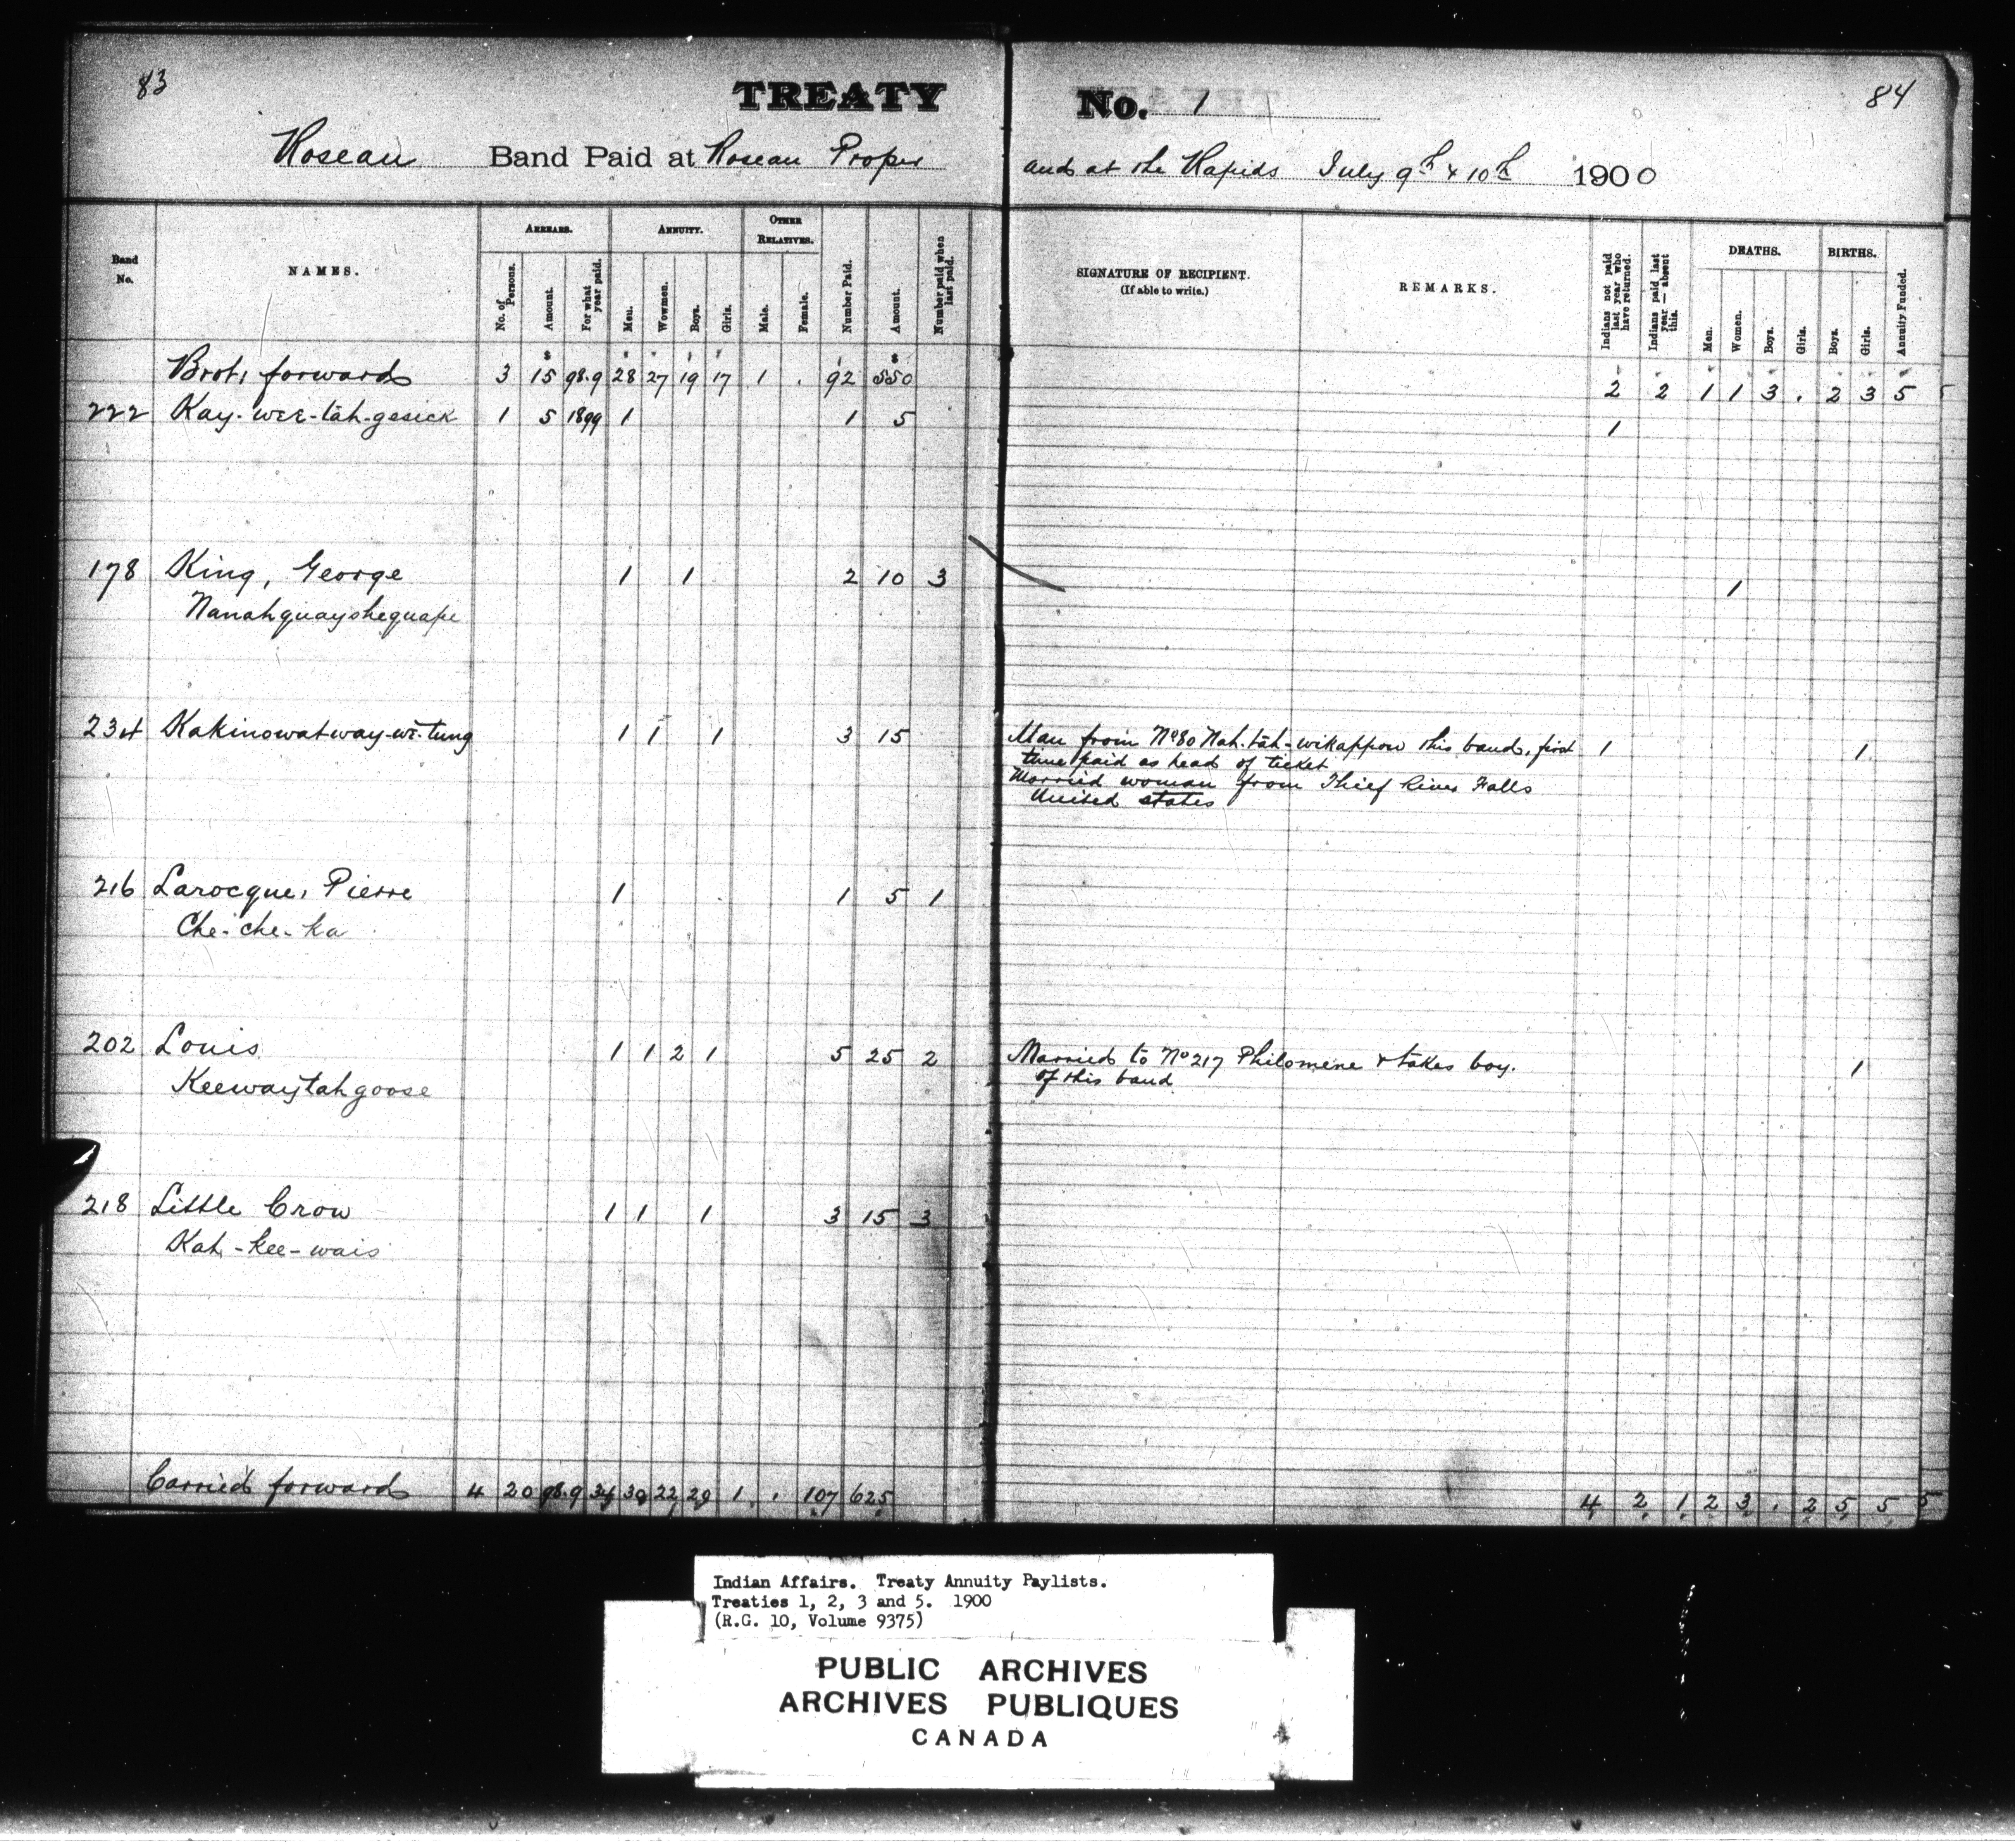 83
TREATY No. 1
84
Roseau Band Paid at Roseau Proper and at the Rapids July 9th & 10th 1900
Band No. NAMES. ARREARS. ANNUITY. OTHER RELATIVES. Number Paid. Amount. Number paid when last paid. SIGNATURE OF RECIPIENT. (If able to write.) REMARKS. Indians not paid last year who have returned. Indians paid last year — absent this. DEATHS. BIRTHS. Annuity Funded.
No. of Persons. Amount. For what year paid. Men. Wowmen. Boys. Girls. Male. Female. Men. Women. Boys. Girls. Boys. Girls.
Brot. forward 3 15 98.9 28 27 19 17 1 . 92 550 2 2 1 1 3 . 2 3 5
222 Kay-wee-tah-gesick 1 5 1899 1 1 5 1
178 King, George 1 1 2 10 3 1
Nanahquayshequape
234 Kakinowatway-we-tung 1 1 1 3 15 Man from No 80 Nah-tah-wikappow this band, first 1 1
time paid as head of ticket
Married woman from Thief River Falls
United States
216 Larocque, Pierre 1 1 5 1
Che-che-ka
202 Louis 1 1 2 1 5 25 2 Married to No 217 Philomene & takes boy. 1
of this band
Keewaytahgoose
218 Little Crow 1 1 1 3 15 3
Kah-kee-wais
Carried forward 4 20 98.9 34 30 22 20 1 . 107 625 4 2 1 2 3 . 2 5 5 5
Indian Affairs. Treaty Annuity Paylists.
Treaties 1, 2, 3 and 5. 1900
(R.G. 10, Volume 9375)
PUBLIC ARCHIVES
ARCHIVES PUBLIQUES
CANADA